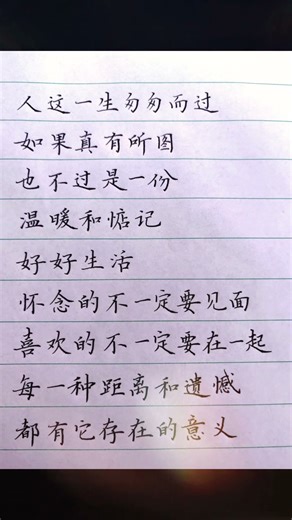 人这一生匆匆而过
如果真有所图
也不过是一份
温暖和惦记
好好生活
怀念的不一定要见面
喜欢的不一定要在一起
每一种距离和遗憾
都有它存在的意义